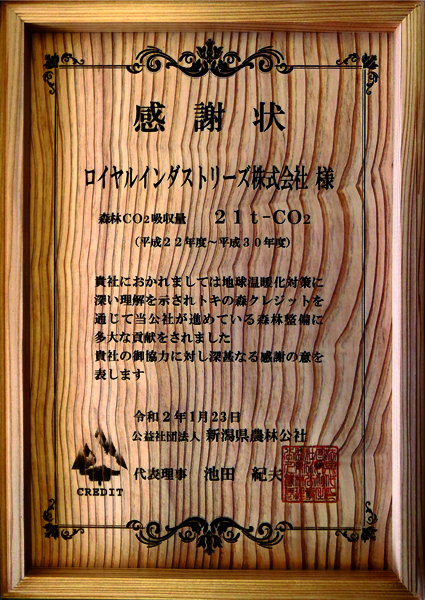 感謝状
ロイヤルインダストリーズ株式会社 様
森林CO2吸収量 21t-CO2
(平成22年度~平成30年度)
貴社におかれましては地球温暖化対策に
深い理解を示されトキの森クレジットを
通じて当公社が進めている森林整備に
多大な貢献をされました
貴社の御協力に対し深甚なる感謝の意を
表します
令和2年1月23日
公益社団法人 新潟県農林公社
代表理事 池田 紀夫
CREDIT